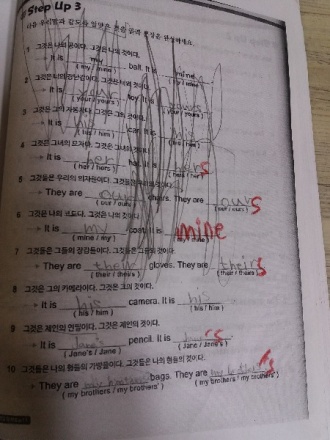 Step Up 3
다음 우리말과
1 그것은 나의 공이다. 그것은 나의 것이다.
→ It is my ball. It is mine
( my / mine ) ( my / mine )
2
→ It is your toy. It is yours
( your / yours ) ( your / yours )
3 그것은 그의 자동차다. 그것은 그의 것이다.
→ It is his car. It is his
( his / him ) ( his / him )
4 그것은 그녀의 모자다. 그것은 그녀의 것이다.
→ It is her hat. It is hers
( her / hers ) ( her / hers )
5 그것들은 우리의 의자들이다. 그것들은 우리의 것이다.
→ They are our chairs. They are ours
( our / ours ) ( our / ours )
6 그것은 나의 코트다. 그것은 나의 것이다.
→ It is my coat. It is mine
( mine / my )
7 그것들은 그들의 장갑들이다. 그것들은 그들의 것이다.
→ They are their gloves. They are theirs
( their / theirs ) ( their / theirs )
8 그것은 그의 카메라이다. 그것은 그의 것이다.
→ It is his camera. It is his
( his / him ) ( his / him )
9 그것은 제인의 연필이다. 그것은 제인의 것이다.
→ It is Jane's pencil. It is
( Jane's / Jane ) ( Jane / Jane's )
10 그것들은 나의 형들의 가방들이다. 그것들은 나의 형들의 것이다.
→ They are my brothers' bags. They are
( my brothers / my brothers' ) ( my brothers / my brothers' )